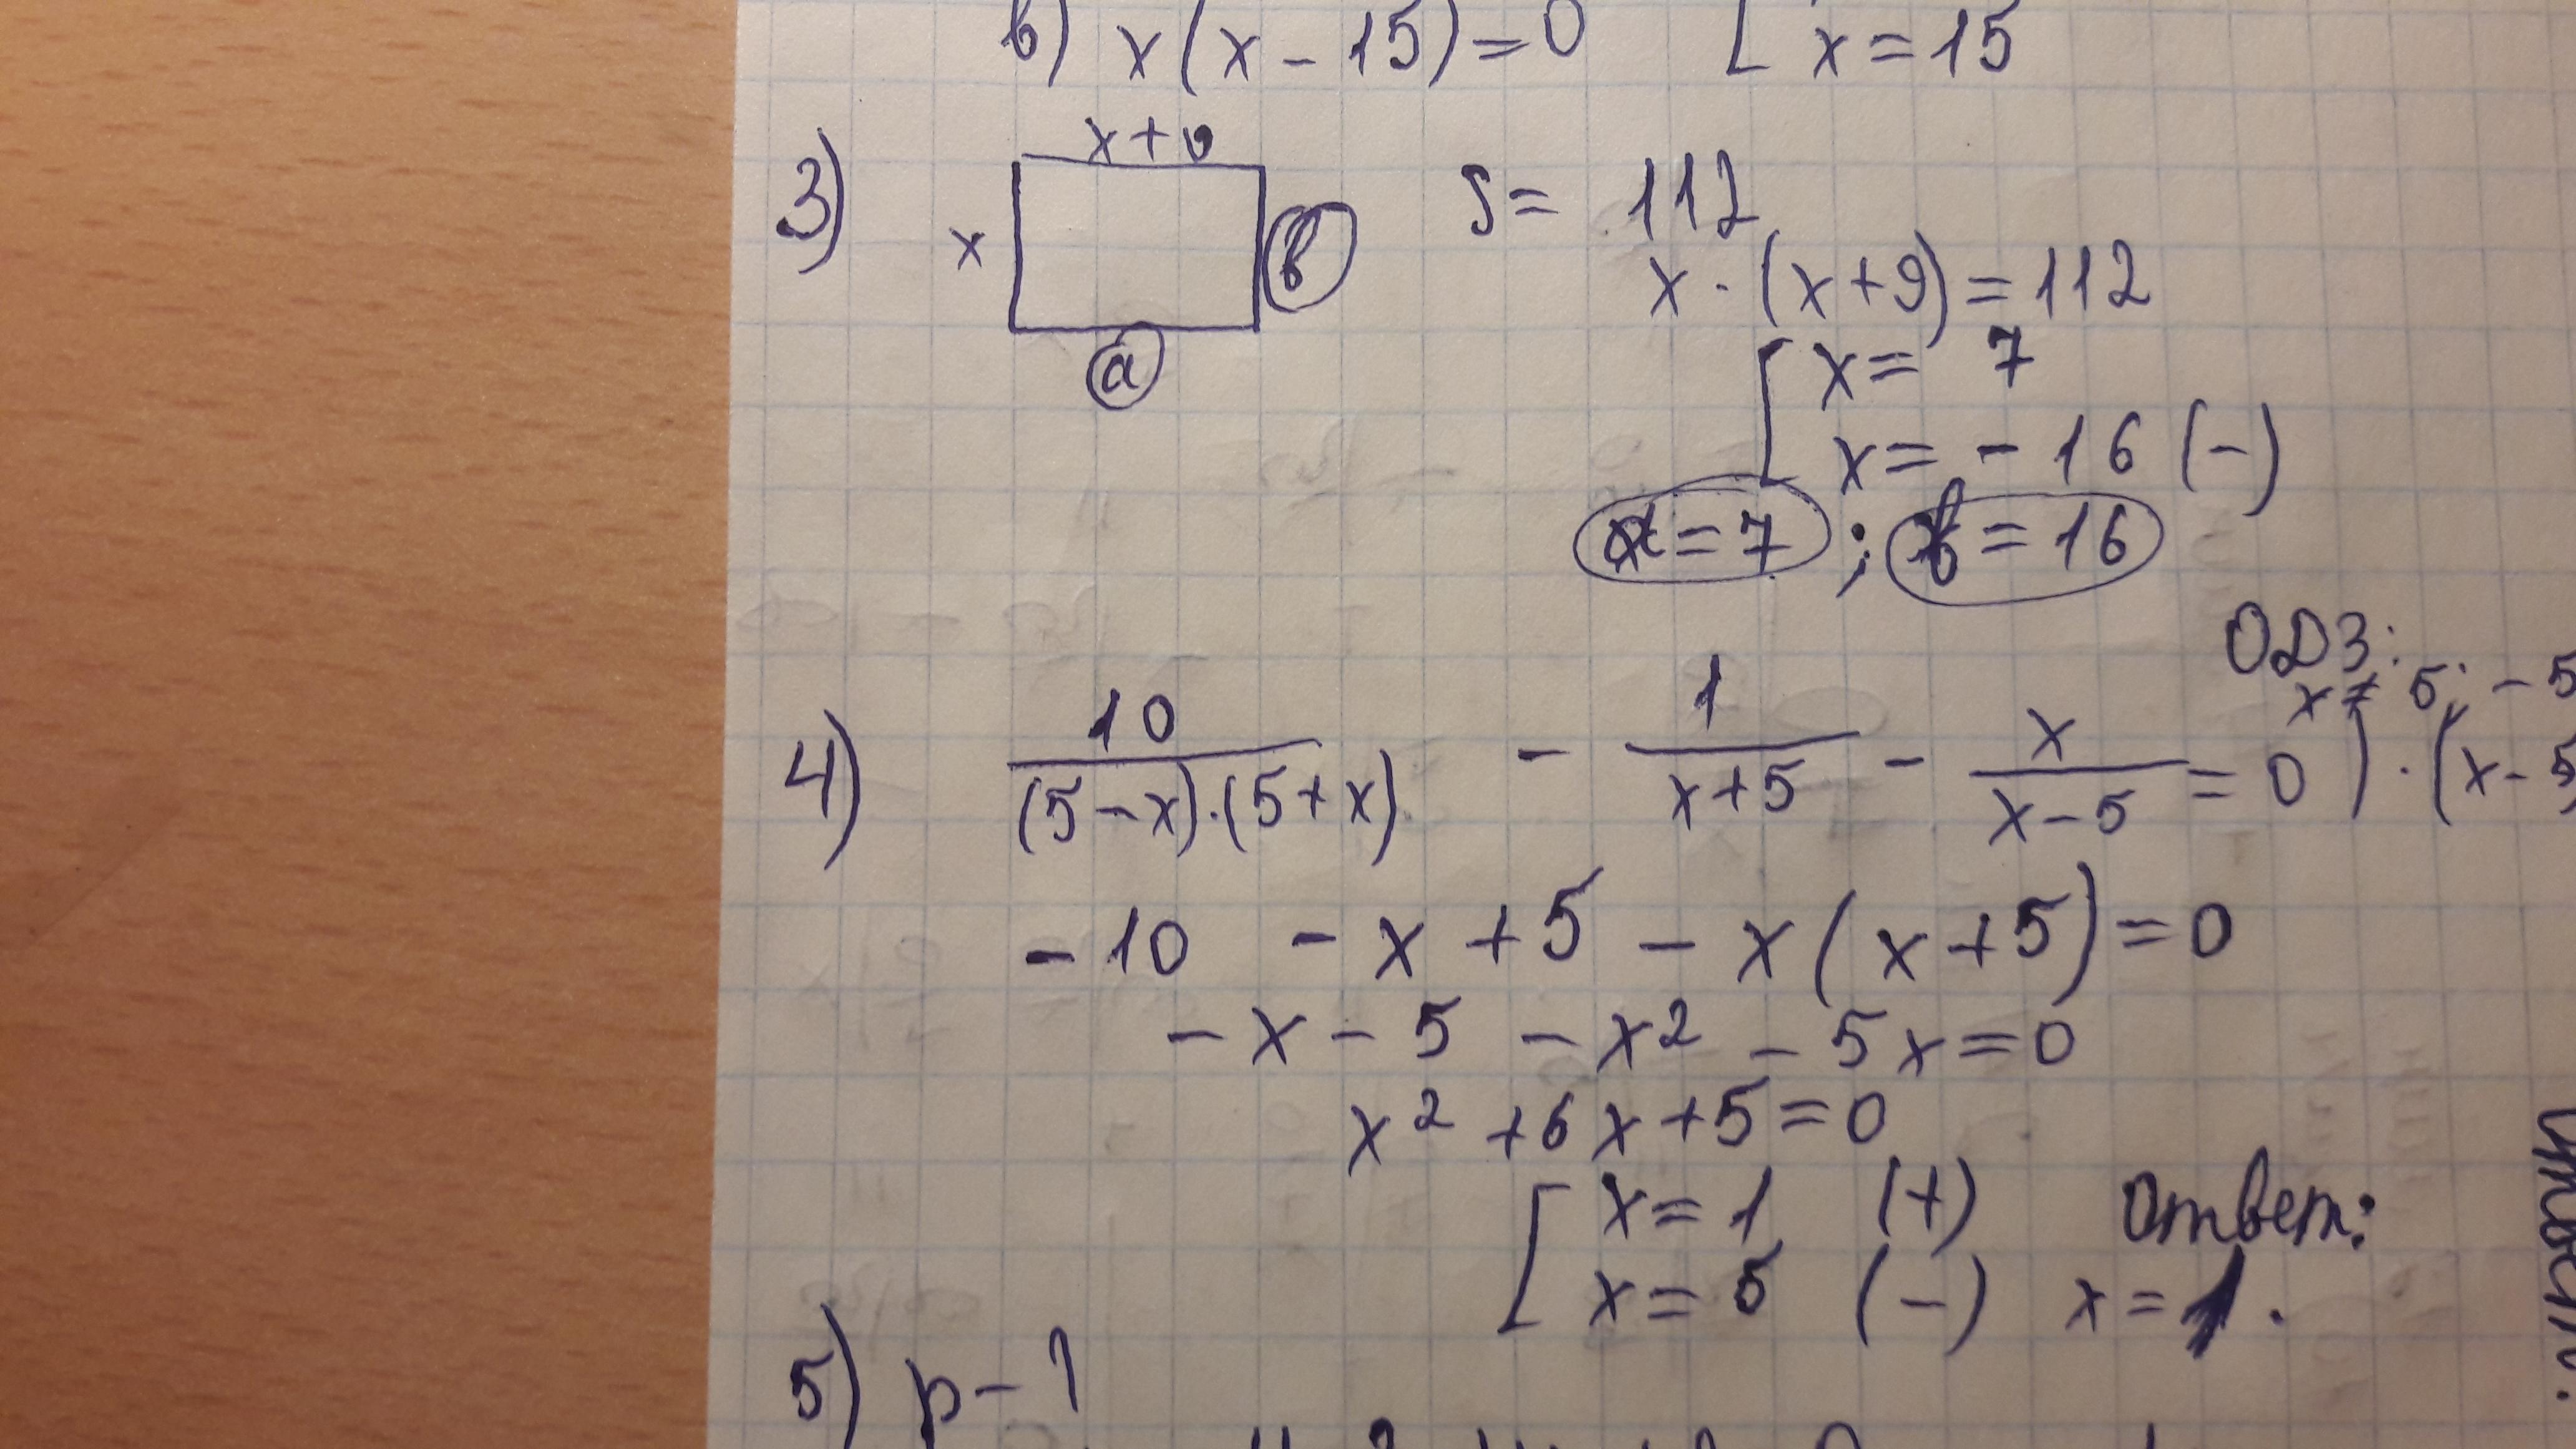 в) x(x-15)=0 [ x=15
3) x+9 S= 112
x в x·(x+9)=112
a [ x= 7
x= -16 (-)
a=7 ; в=16
ОДЗ:
x≠ 5; -5
4) 10/((5-x)·(5+x)) - 1/(x+5) - x/(x-5) = 0 )·(x-5)
-10 -x +5 -x(x+5)=0
-x-5 -x² -5x=0
x² +6x+5=0
[ x=1 (+) Ответ:
x=5 (-) x=1.
5)